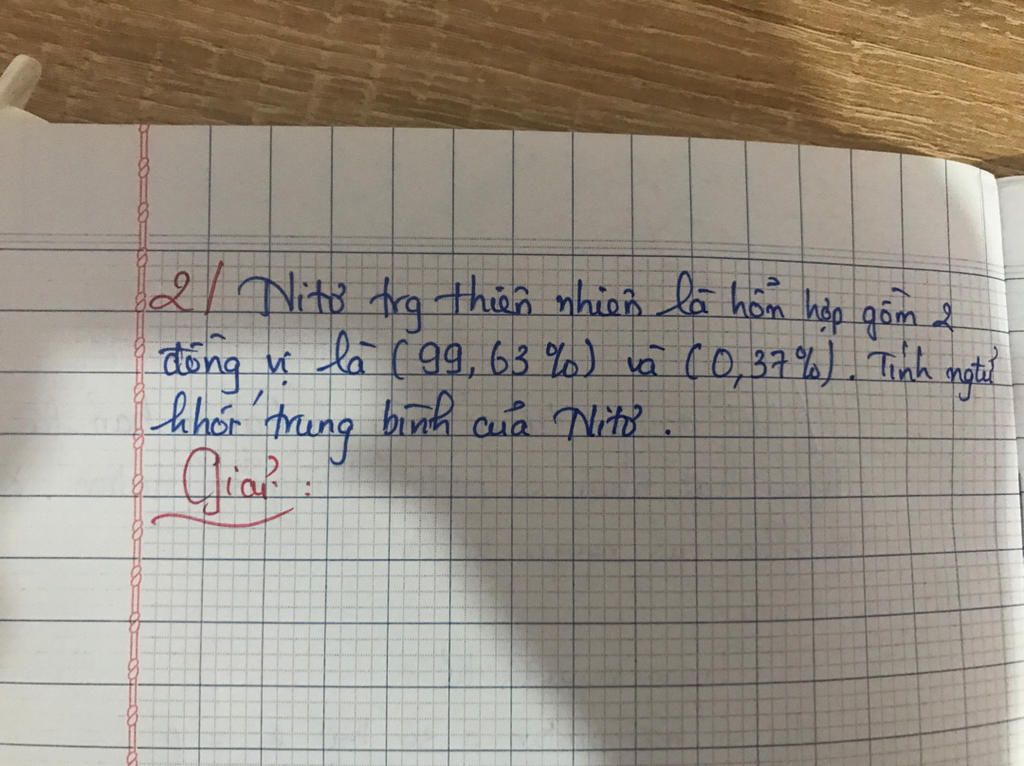 2/ Nitơ trg thiên nhiên là hổn hợp gồm 2
đồng vị là (99,63%) và (0,37%). Tính ngtử
khối trung bình của Nitơ.
Giải: